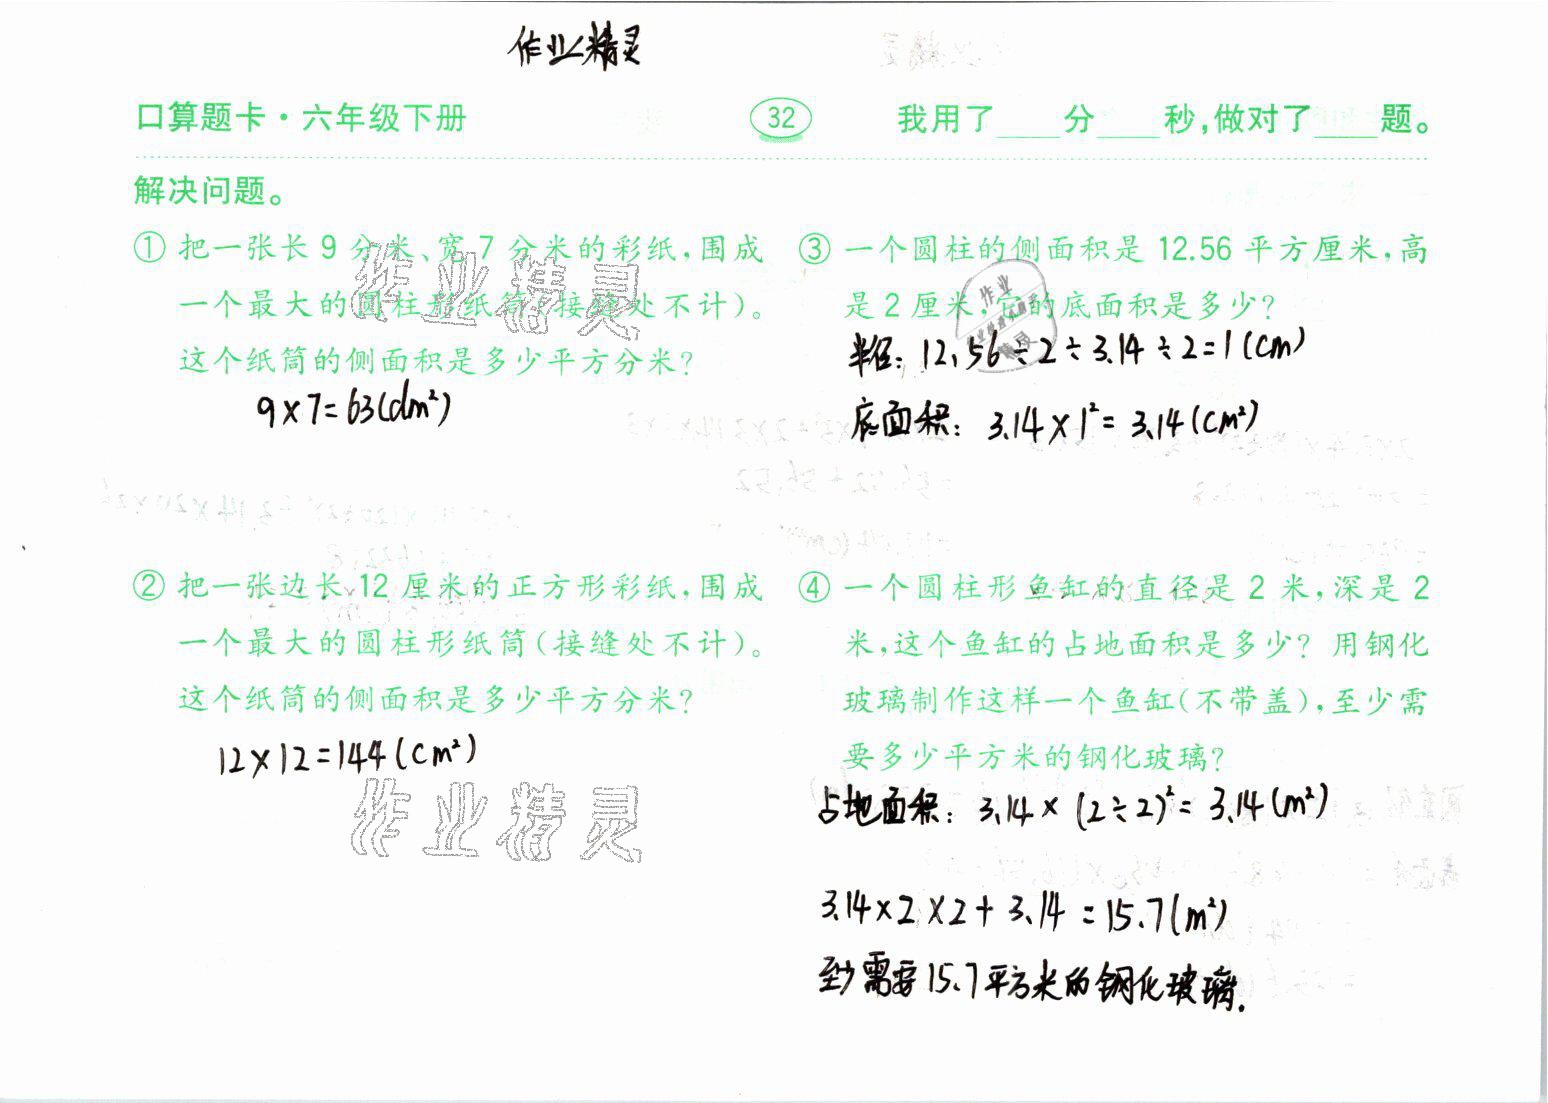 作业精灵
口算题卡·六年级下册
32
我用了____分____秒,做对了____题。
解决问题。
① 把一张长 9 分米、宽 7 分米的彩纸,围成
一个最大的圆柱形纸筒(接缝处不计)。
这个纸筒的侧面积是多少平方分米?
9×7=63(dm²)
② 把一张边长 12 厘米的正方形彩纸,围成
一个最大的圆柱形纸筒(接缝处不计)。
这个纸筒的侧面积是多少平方分米?
12×12=144(cm²)
③ 一个圆柱的侧面积是 12.56 平方厘米,高
是 2 厘米,它的底面积是多少?
半径: 12.56÷2÷3.14÷2=1(cm)
底面积: 3.14×1²=3.14(cm²)
④ 一个圆柱形鱼缸的直径是 2 米,深是 2
米,这个鱼缸的占地面积是多少? 用钢化
玻璃制作这样一个鱼缸(不带盖),至少需
要多少平方米的钢化玻璃?
占地面积: 3.14×(2÷2)²=3.14(m²)
3.14×2×2+3.14=15.7(m²)
至少需要15.7平方米的钢化玻璃.
作业精灵
作业精灵
作业
精灵